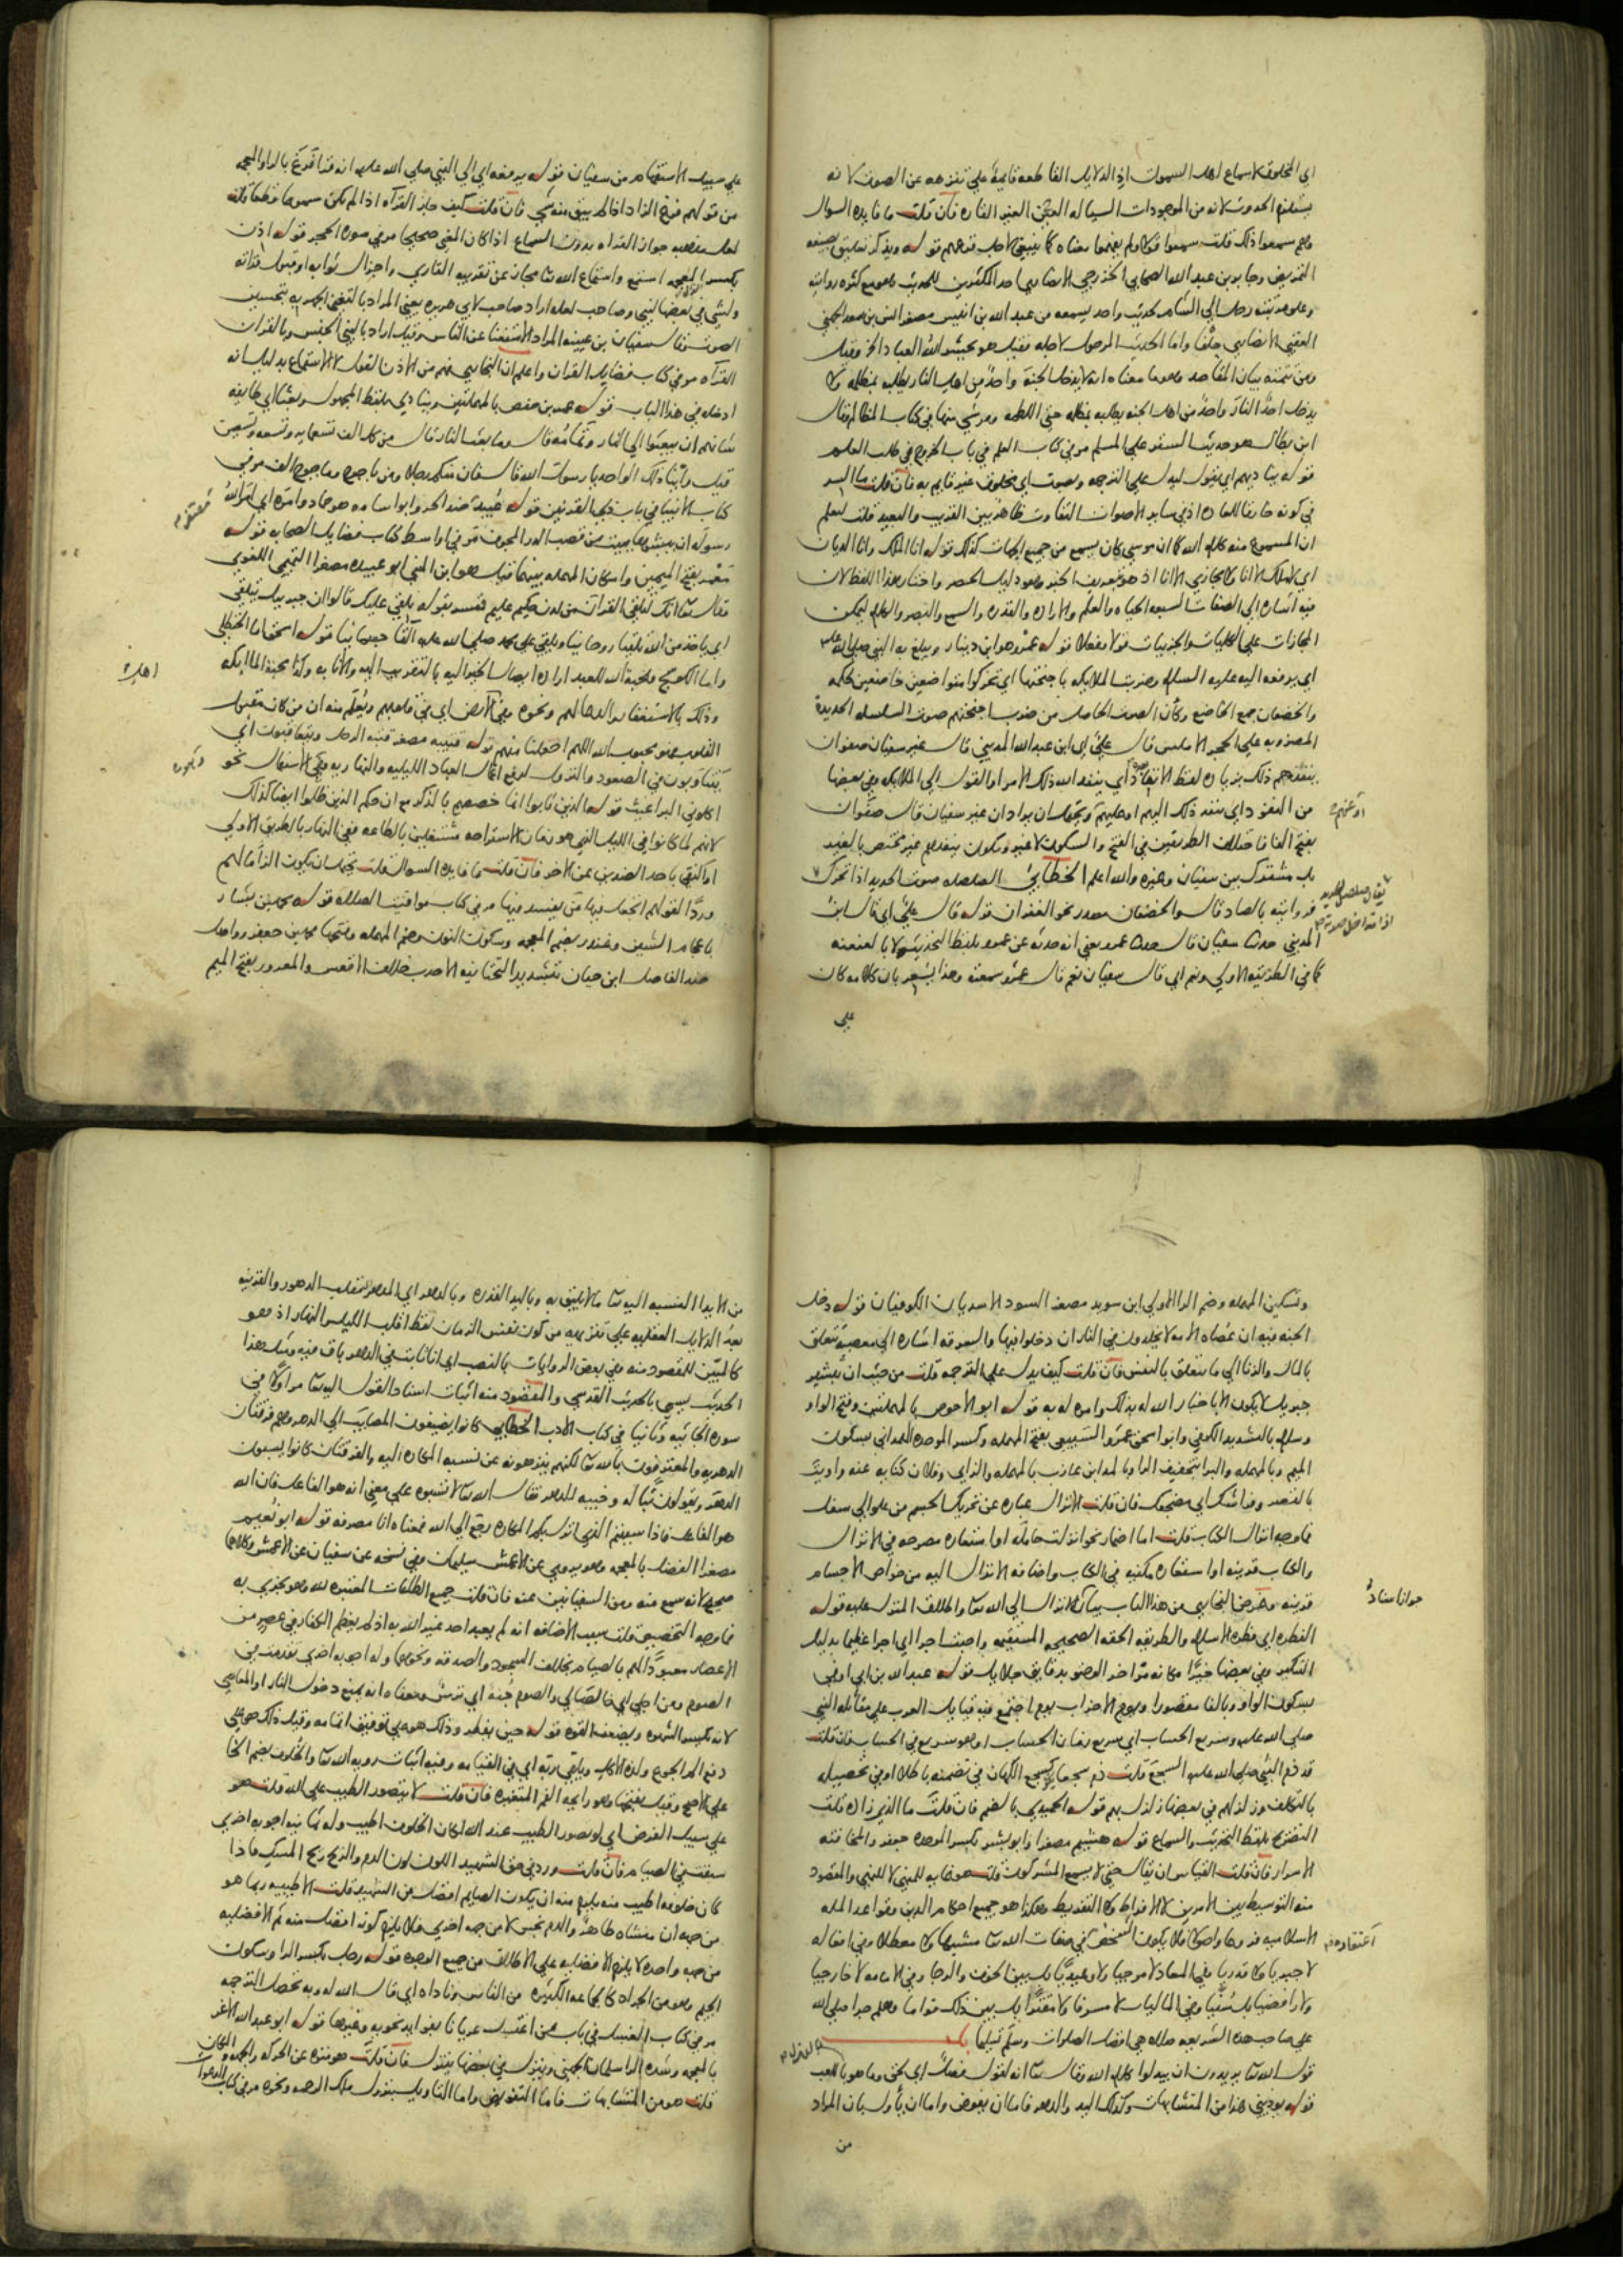 اي المخلوق لاسماع اهل السموات اذ الدلايل القاطعه قايمة على تنزهه عن الصوت لانه
يستلزم الحدوث لانه من الموجودات السياله الغير القاره فان قلت ما فايده السوال
وهم سمعوا ذلك قلت سمعوا قولا ولم يفهموا معناه كما ينبغي لاجل فزعهم قوله ويذكر تعليق بصيغه
التمريض وجابر بن عبد الله الصحابي الخزرجي الانصاري احد المكثرين للحديث وهو مع كثره روايته
وعلو مرتبته رحل الي الشام لحديث واحد يسمعه من عبد الله بن انيس مصغر انس بن سعد الجهني
العقبي الانصاري حلفا واما الحديث المرحول لاجله فقيل هو يحشر الله العباد الخ وقيل
يدخل احد النار واحد من اهل الجنه يطلبه بمظلمه حتى اللطمه ومر شي منها في كتاب المظالم وقال
ابن بطال هو حديث الستر على المسلم مر في كتاب العلم في باب الخروج في طلب العلم
قوله يناديهم اي يقول ليدل على الترجمه وبصوت اي مخلوق غير قايم به فان قلت ما السر
في كونه خارقا للعاده اذ في ساير الاصوات التفاوت ظاهر بين القريب والبعيد قلت ليعلم
ان المسموع منه كلام الله كما ان موسي كان يسمع من جميع الجهات كذلك قوله انا الملك وانا الديان
اي لا ملك الا انا ولا مجازي الا انا اذ هو تعريف الخبر وهو دليل الحصر واختار هذا اللفظ لان
فيه اشاره الي الصفات السبعه الحياه والعلم والاراده والقدره والسمع والبصر والكلام ليمكن
المجازات على الكليات والجزييات قولا وفعلا قوله عمرو هو ابن دينار ويبلغ به النبي صلي الله عليه
اي يرفعه اليه عليه السلام وضربت الملايكه باجنحتها اي تحركوا متواضعين خاضعين لحكمه
والخضعان جمع الخاضع وكان الصوت الحاصل من ضرب اجنحتهم صوت السلسله الحديد
المضروبه على الحجر الاملس قال علي اي ابن عبد الله المديني قال غير سفيان صفوان
ينفذهم ذلك بزياده لفظ الانفاذ اي ينفذ الله ذلك الامر او القول الي الملايكه وفي بعضها
من النفوذ اي ينفذ ذلك اليهم او عليهم ويحتمل ان يراد ان غير سفيان قال صفوان
بفتح الفا فاختلاف الطريقين في الفتح والسكون لا غير ويكون ينفذهم غير مختص بالغير
بل مشترك بين سفيان وغيره والله اعلم الخطابي الصلصله صوت الحديد اذا تحرك
فرواتبه بالصاد قال والخضعان مصدر نحو الغفران قوله قال علي اي قال ابن
المديني حدثنا سفيان قال حدثنا عمرو يعني انه حدثه عن عمرو بلفظ التحديث لا بالعنعنه
كما في الطريقه الاولي ونعم اي قال سفيان نعم قال عمرو سمعته وهذا يشعر بان كلامه كان
على
علي سبيل الاستفهام من سفيان قوله يرفعه اي الي النبي صلي الله عليه انه قرا فرغ بالراو المعجمه
من قولهم فرغ الزاد اذا لم يبق منه شي فان قلت كيف جاز القراه اذا لم تكن مسموعا قطعا قلت
لعل مذهبه جواز القراه بدون السماع اذا كان المعنى صحيحا مر في سوره الحجر قوله اذن
بكسر المعجمه استمع واستماع الله تعالى مجاز عن تقريبه القاري واجزال ثوابه او قبول قراته
ولشي في بعضها لنبي وصاحب له اراد صاحب لابي هريره يعني المراد بالتغني الجهر به بتحسين
الصوت وقال سفيان بن عيينه المراد الاستغنا عن الناس وقيل اراد بالنبي الجنس وبالقران
القراه مر في كتاب فضايل القران واعلم ان البخاري فهم من الاذن القول لا الاستماع بدليل انه
ادخله في هذا الباب قوله عمر بن حفص بالمهملتين وينادي بلفظ المجهول وبعثا اي طايفه
شانهم ان يبعثوا الي النار وتمامه قال وما بعث النار قال من كل الف تسعمايه وتسعه وتسعين
قيل واينا ذلك الواحد يا رسول الله قال فان منكم رجلا ومن ياجوج وماجوج الف مر في
كتاب الانبيا في باب ذي القرنين قوله عبيد ضد الحر وابو اسامه هو حماد وامره اي امر الله
رسوله ان يبشرها ببيت من قصب الدر المجوف مر في اواسط كتاب فضايل الصحابه قوله
معمر بفتح الميمين واسكان المهمله بينهما قيل هو ابن المثنى ابو عبيده مصغرا التيمي اللغوي
فقال تعالى انك لتلقي القران من لدن حكيم عليم فسر بقوله يلقي عليك قالوا ان جبريل يتلقي
اي ياخذ من الله تلقيا روحانيا ويلقي على محمد صلي الله عليه القا جسمانيا قوله اسحق اما الحنظلي
واما الكوسج ومحبة الله للعبد اراده ايصال الخير اليه بالتقرب اليه والاثابه وكذا محبة الملايكه
وذلك بالاستغفار والدعا لهم ونحوه وفي الارض اي في قلوبهم ويعلم منه ان من كان مقبول
القلوب فهو محبوب الله اللهم اجعلنا منهم قوله قتيبه مصغر قتبه الرحل ويتعاقبون اي
يتناوبون في الصعود والنزول لرفع اعمال العباد الليليه والنهاريه وهي الاستعمال نحو
اكلوني البراغيث قوله والذين باتوا انما خصهم بالذكر مع ان حكم الذين ظلوا ايضا كذلك
لانهم لما كانوا في الليل الذي هو زمان الاستراحه مشتغلين بالطاعه ففي النهار بالطريق الاولي
او اكتفي باحد الضدين عن الاخر فان قلت ما فايده السوال قلت يحتمل ان يكون الزاما لهم
وردا لقولهم اتجعل فيها من يفسد فيها مر في كتاب مواقيت الصلاه قوله محمد بن بشار
باعجام الشين وغندر بضم المعجمه وسكون النون وضم المهمله وفتحها محمد بن جعفر وواصل
ضد الفاصل ابن حيان بتشديد التحتانيه الاحدب خلاف الاقعس والمعرور بفتح الميم
وتسكين المهمله وضم الرا الاولي ابن سويد مصغر السود الاسديان الكوفيان قوله دخل
الجنه فيه ان عصاه الامه لا يخلدون في النار ان دخلوا فيها والسرقه اشاره الي معصية تتعلق
بالمال والزنا الي ما يتعلق بالنفس فان قلت كيف يدل على الترجمه قلت من حيث ان تبشير
جبريل لا يكون الا باخبار الله له بذلك وامره له به قوله ابو الاحوص بالمهملتين وفتح الواو
وسلام بالتشديد الكوفي وابو اسحق عمرو السبيعي بفتح المهمله وكسر الموحده الهمداني بسكون
الميم وبالمهمله والبرا بتخفيف الرا وبالمد ابن عازب بالمهمله والزاي وفلان كنايه عنه واويت
بالقصر وفراشك اي مضجعك فان قلت الانزال عباره عن تحريك الجسم من علو الي سفل
فما وجه انزال الكتاب قلت اما اضمار نحو انزلت حامله او استعاره مصرحه في الانزال
والكتاب قرينه او استعاره مكنيه في الكتاب واضافه الانزال اليه من خواص الاجسام
قرينه وغرض البخاري من هذا الباب بيان الانزال الي الله تعالى واطلاق المنزل عليه قوله
الفطره اي فطره الاسلام والطريقه الحقه الصحيحه المستقيمه واصبت اجرا اي اجرا عظيما بدليل
التنكير وفي بعضها خيرا مكانه مر اخر الوضو بدقايق جلايل قوله عبد الله بن ابي اوفي
بسكون الواو وبالفا مقصورا ويوم الاحزاب يوم اجتمع فيه قبايل العرب على مقاتله النبي
صلي الله عليه وسريع الحساب اي سريع زمان الحساب او هو سريع في الحساب فان قلت
قد ذم النبي صلي الله عليه السجع قلت ذم سجعا كسجع الكهان في تضمنه باطلا او في تحصيله
بالتكلف وزلزلهم في بعضها زلزل بهم قوله الحميدي بالضم فان قلت ما الذي زاده قلت
التصريح بلفظ التحديث والسماع قوله هشيم مصغرا وابو بشر بكسر الموحده جعفر والمخافته
الاسرار فان قلت القياس ان يقال حتى لا يسمع المشركون قلت هو غايه للمنهي لا للنهي والمقصود
منه التوسيط بين الامرين لا الافراط ولا التفريط وهكذا هو جميع احكام الدين وقواعد المله
الاسلاميه فروعا واصولا فلا يكون الشخص في صفات الله تعالى مشبها ولا معطلا وفي افعاله
لا جبريا ولا قدريا وفي المعاد لا مرجيا ولا وعيديا بل بين الخوف والرجا وفي الامامه لا خارجيا
ولا رافضيا بل سنيا وفي الماليات لا مسرفا ولا مقترا بل بين ذلك قواما وهلم جرا صلي الله
على صاحب هذه الشريعه صلاه هي افضل الصلوات وسلم تسليما باب
قول الله تعالى يريدون ان يبدلوا كلام الله وقال تعالى انه لقول فصل اي حق وما هو باللعب
قوله يوذيني هذا من المتشابهات وكذلك اليد والدهر فاما ان يفوض واما ان يأول بان المراد
من
من الايذا النسبه اليه تعالى ما لا يليق به وباليد القدره وبالدهر اي المدهر مقلب الدهور والقرينه
بعد الدلايل العقليه على تنزيهه من كون نفس الزمان لفظ اقلب الليل والنهار اذ هو
كالمبين للمقصود منه وفي بعض الروايات بالنصب اي انا ثابت في الدهر باق فيه ومثل هذا
الحديث يسمي بالحديث القدسي والمقصود منه اثبات اسناد القول اليه تعالى مر اولا في
سوره الجاثيه وثانيا في كتاب الادب الخطابي كانوا يضيفون المصايب الي الدهر وهم فرقتان
الدهريه والمعترفون بالله تعالى لكنهم ينزهونه عن نسبه المكاره اليه والفرقتان كانوا يسبون
الدهر ويقولون تبا له وخيبه للدهر فقال الله تعالى لا تسبوه على معنى انه هو الفاعل فان الله
هو الفاعل فاذا سببتم الذي انزل بكم المكاره رجع الي الله فمعناه انا مصرفه قوله ابو نعيم
مصغرا الفضل بالمعجمه وهو يروي عن الاعمش سليمان وفي نسخه عن سفيان عن الاعمش وكلاهما
صحيح لانه سمع منه ومن السفيانين عنه فان قلت جميع الطاعات المعتبره لله وهو يجزي به
فما وجه التخصيص قلت سبب الاضافه انه لم يعبد احد غير الله به اذ لم يعظم الكفار في عصر من
الاعصار معبودا لهم بالصيام بخلاف السجود والصدقه ونحوها وله اجوبه اخري تقدمت في
الصوم ومن اجلي اي خالصا لي والصوم جنه اي ترس ومعناه انه يمنع دخول النار او المعاصي
لانه يكسر الشهوه ويضعف القوه قوله حين يفطر وذلك هو في توفيق اتمامه وقيل ذلك هو على
دفع الم الجوع ولذه الاكل ويلقي ربه اي في القيامه وفيه اثبات رويه الله تعالى والخلوف بضم الخا
على الاصح وقيل بفتحها وهو رايحه الفم المتغيره فان قلت لا يتصور الطيب على الله قلت هو
على سبيل الفرض اي لو تصور الطيب عند الله لكان الخلوف اطيب وله ثمانيه اجوبه اخري
سبقت في الصيام فان قلت ورد في حق الشهيد اللون لون الدم والريح ريح المسك فاذا
كان خلوفه اطيب منه يلزم منه ان يكون الصايم افضل من الشهيد قلت الاطيبيه ربما هو
من جهه ان منشاه طاهر والدم نجس لا من جهه اخري فلا يلزم كونه افضل منه ثم الافضليه
من جهه واحده لا يلزم الافضليه على الاطلاق من جميع الوجوه قوله رجل بكسر الرا وسكون
الجيم وهو من الجراد كالجماعه الكثيره من الناس وناداه اي قال الله له وبه تحصل الترجمه
مر في كتاب الغسل في باب من اغتسل عريانا بفوايد نحويه وغيرها قوله ابو عبد الله الاغر
بالمعجمه وشده الرا سلمان الجهني ويتنزل في بعضها ينزل فان قلت هو منزه عن الحركه والجهه والمكان
قلت هو من المتشابهات فاما التفويض واما التاويل بنزول ملك الرحمه ونحوه مر في كتاب الدعوات